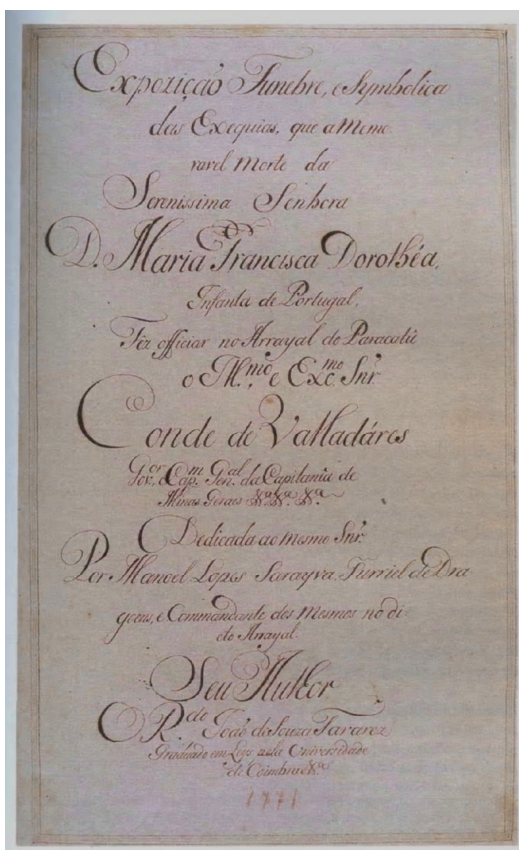 Expoziçaõ Funebre, e Symbolica
das Exequias, que a Memo
ravel Morte da
Serenissima Senhora
D. Maria Francisca Dorothéa,
Infanta de Portugal,
Fêz officiar no Arrayal do Paracatû
o Ill.mo e Exc.mo Snr.
Conde de Valladáres
Gov.or, e Cap.m Gen.al da Capitania de
Minas Geraes &.a &.a &.a
Dedicada ao mesmo Snr.
Por Manoel Lopes Sarayva, Furriel de Dra
goens, e Commandante dos mesmos no di-
to Arrayal.
Seu Author
O R.do Joaõ de Souza Tavarez
Graduado em pela Universidade
de Coimbra &.a
1771